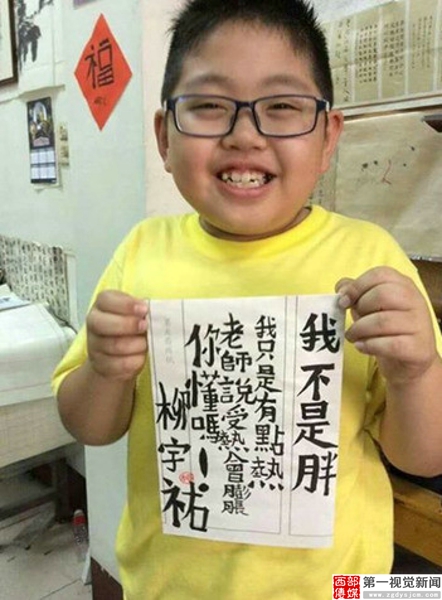 福
我不是胖
我只是有點熱
老師說受熱會膨脹
你懂嗎!
柳宇祐
西部
傳媒
第一视觉新闻
www.zgdysjcm.com